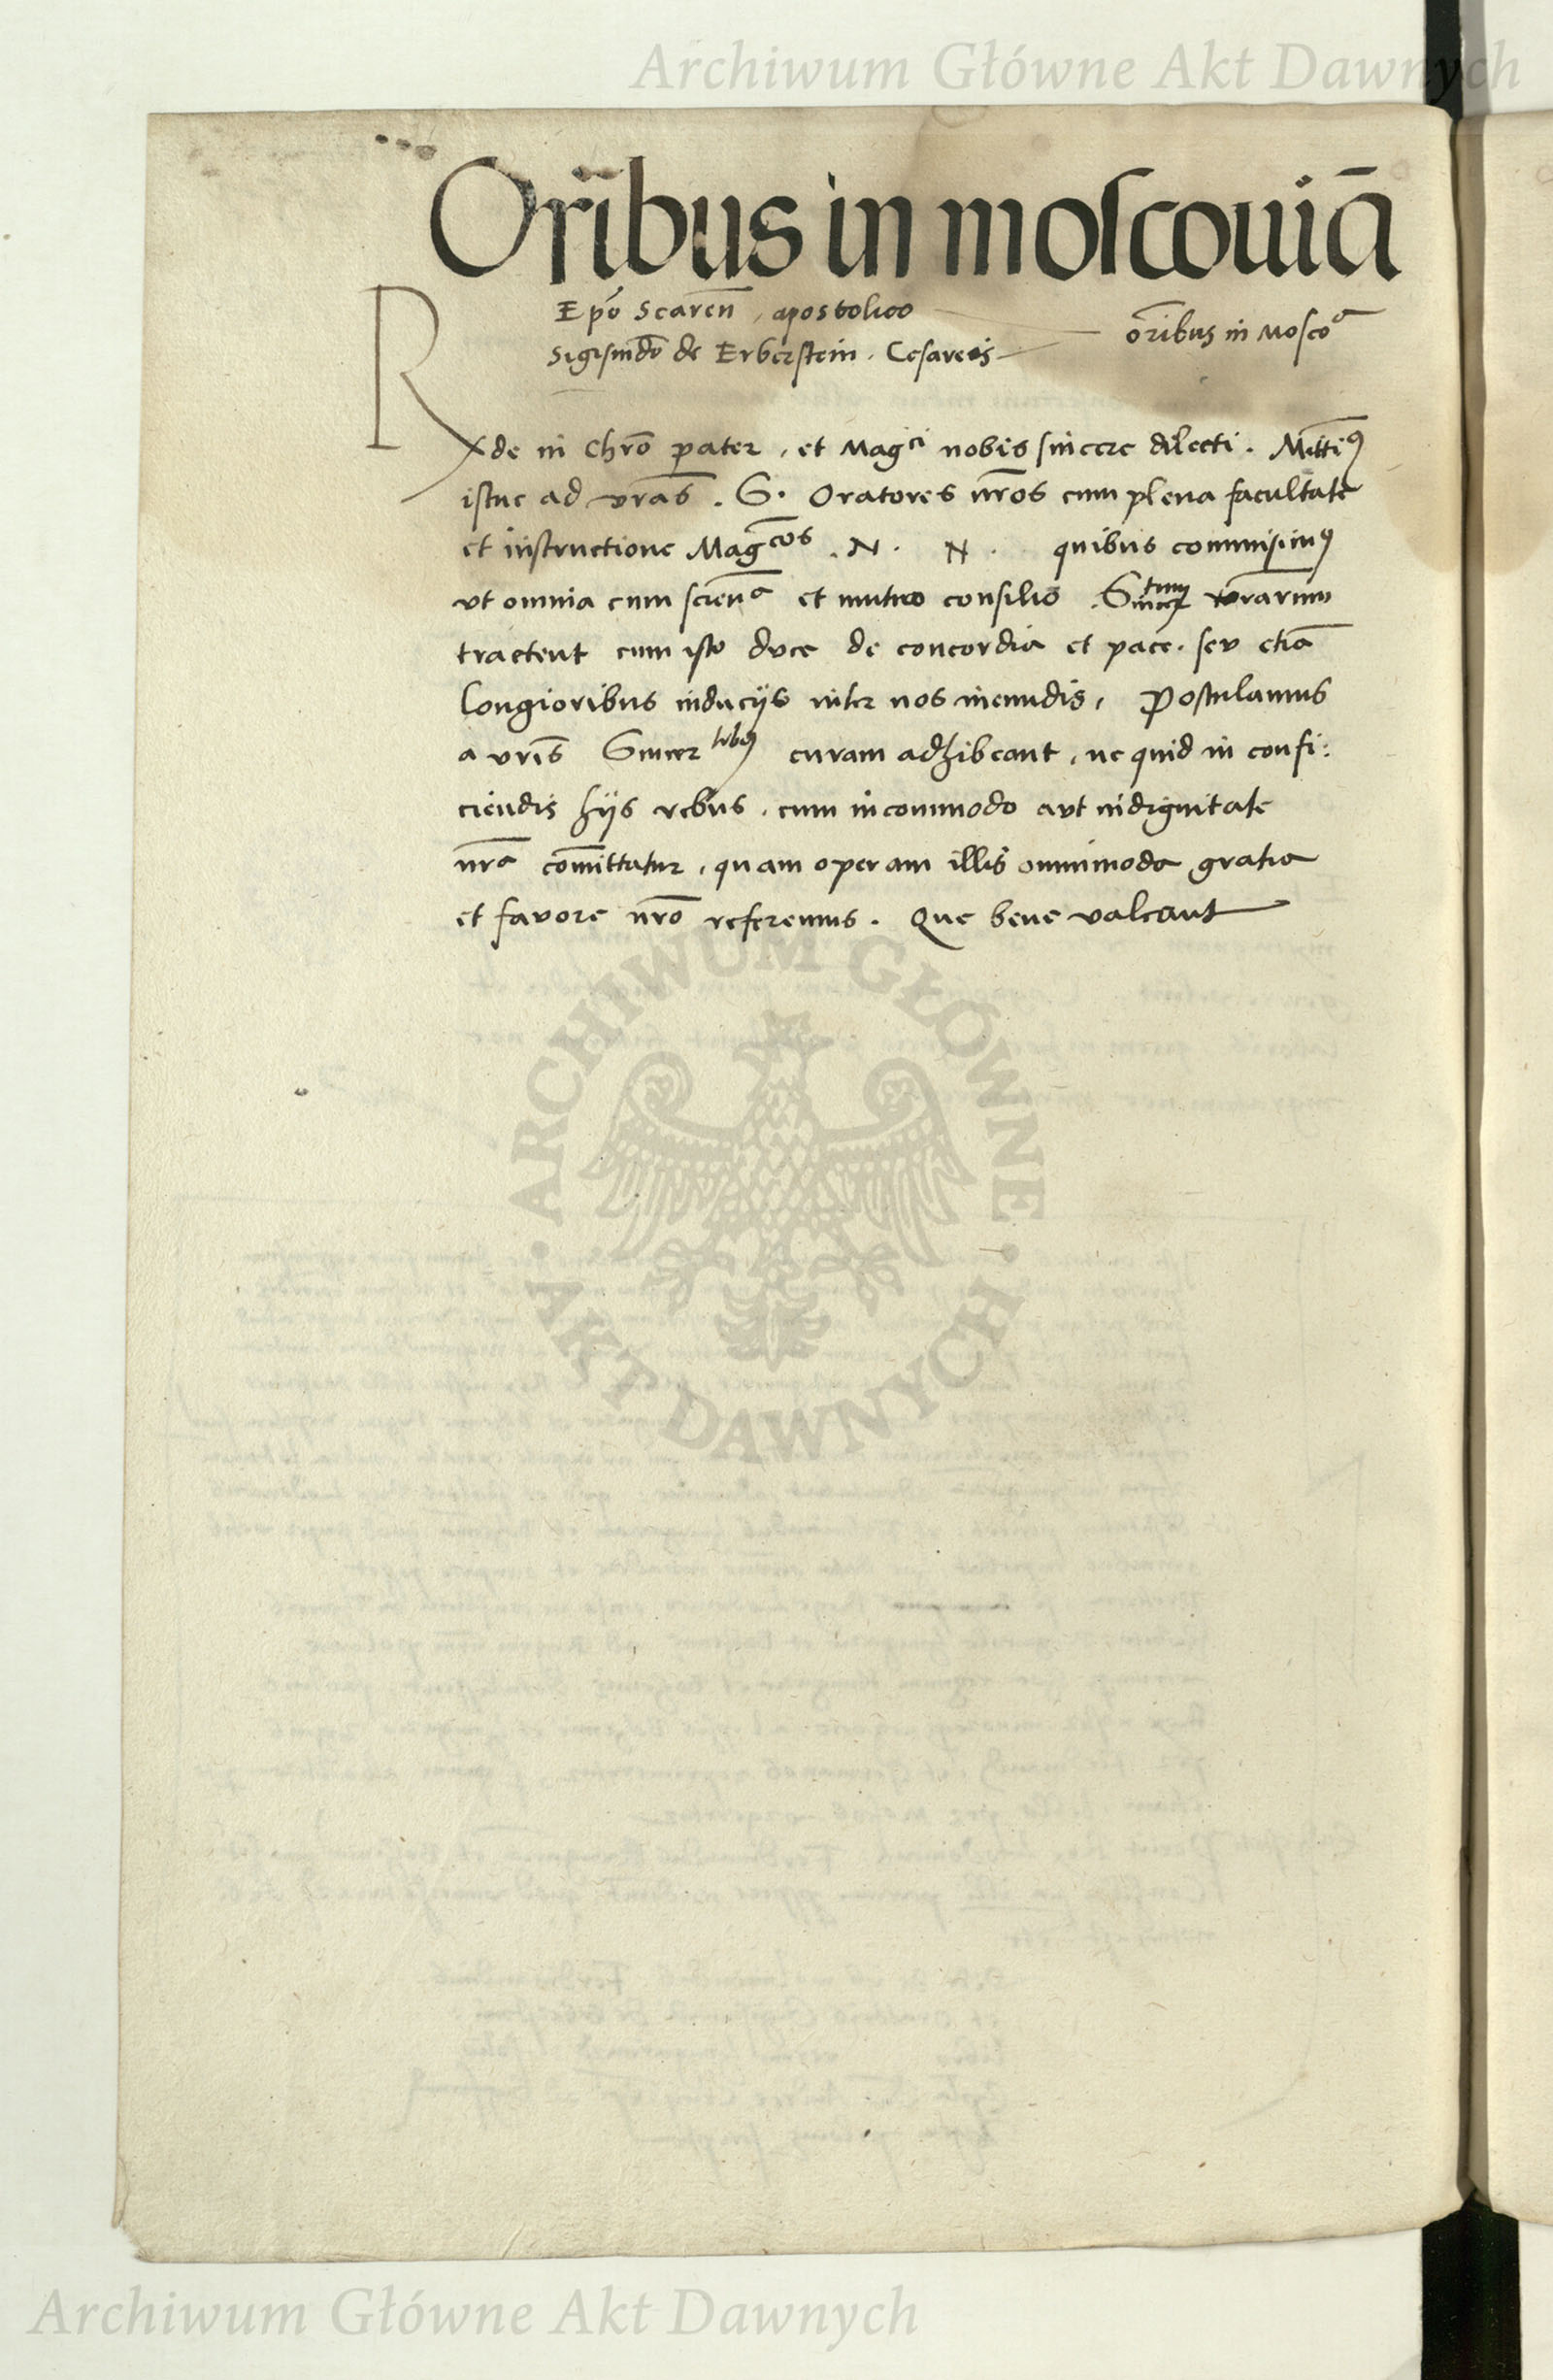 Archiwum Główne Akt Dawnych
Or̃ibus in moscouiā
Epõ Scareñ, apostolico
Sigismdõ de Erberstein. Cesareis
or̃ibus in Moscoᵃ
Rxde in Chrõ pater, et Magᶜⁱ nobis sincere dilecti. Mittimꝰ
istuc ad vrãs. S. Oratores nr̃os cum plena facultate
et instructione Magᶜᵒˢ. N. N. quibus commisimꝰ
vt omnia cum scienᵃ et mutuo consilio vrãrum
tractent cum isto duce de concordia et pace. seu etiã
longioribus induciis inter nos ineundis, Postulamus
a vrĩs Sincerᵗⁱᵇꝰ curam adhibeant, ne quid in confi:
ciendis hijs rebus. cum incommodo aut indignitate
nrã cõmittatur, quam operam illis omnimoda gratia
et fauore nrõ referemus. Que bene valeant
ARCHIWUM GŁÓWNE
AKT DAWNYCH
Archiwum Główne Akt Dawnych